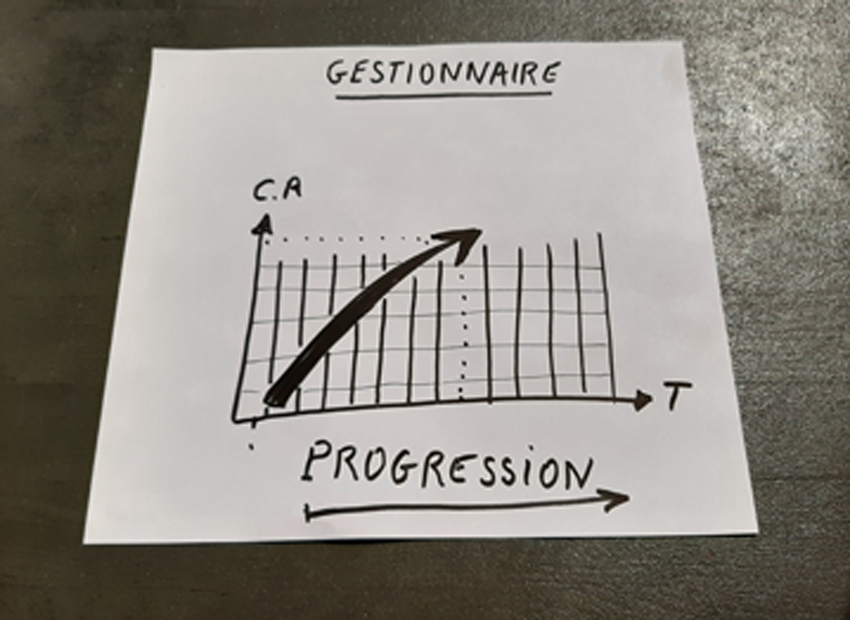 GESTIONNAIRE
C.A
T
PROGRESSION